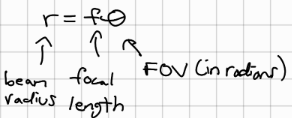 r = fθ
beam radius
focal length
FOV (in radians)